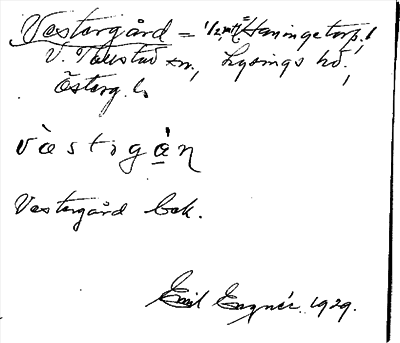 Vestergård = 1/2 mtl Haningetorp,
V. Tollstad sn, Lysings hd,
Österg. l.
vàstrgàn
Vestergård bok.
Emil Eugnér 1929.